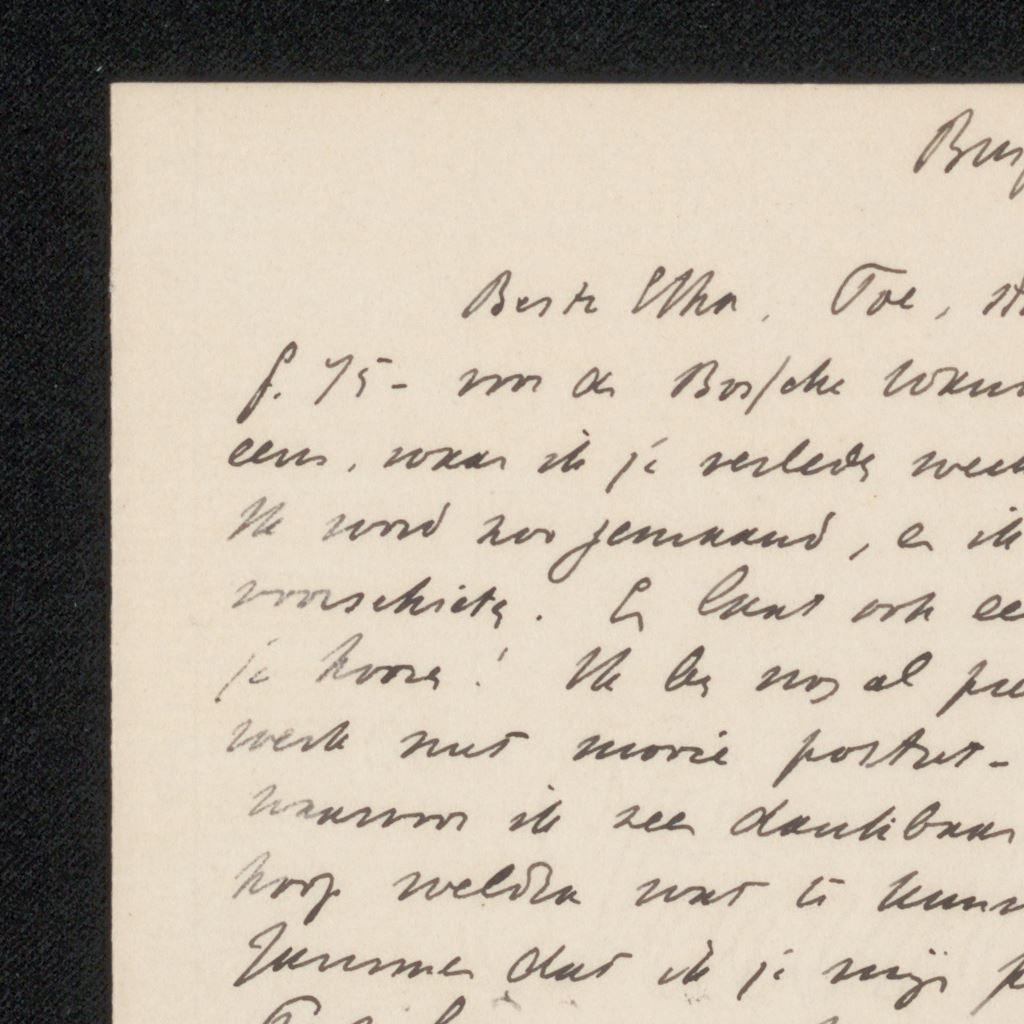 Bus
Beste Etha. Toe, st
f. 75- voor de Bossche
eens, waar ik je verleden week
Ik word zoo gemaand, en ik
voorschieten. En laat ook ee
je hooren! Ik ben nog al
werk met mooie portret-
waarvoor ik zeer dankbaar
hoop weldra wat te kunn
Jammer dat ik je mijn p